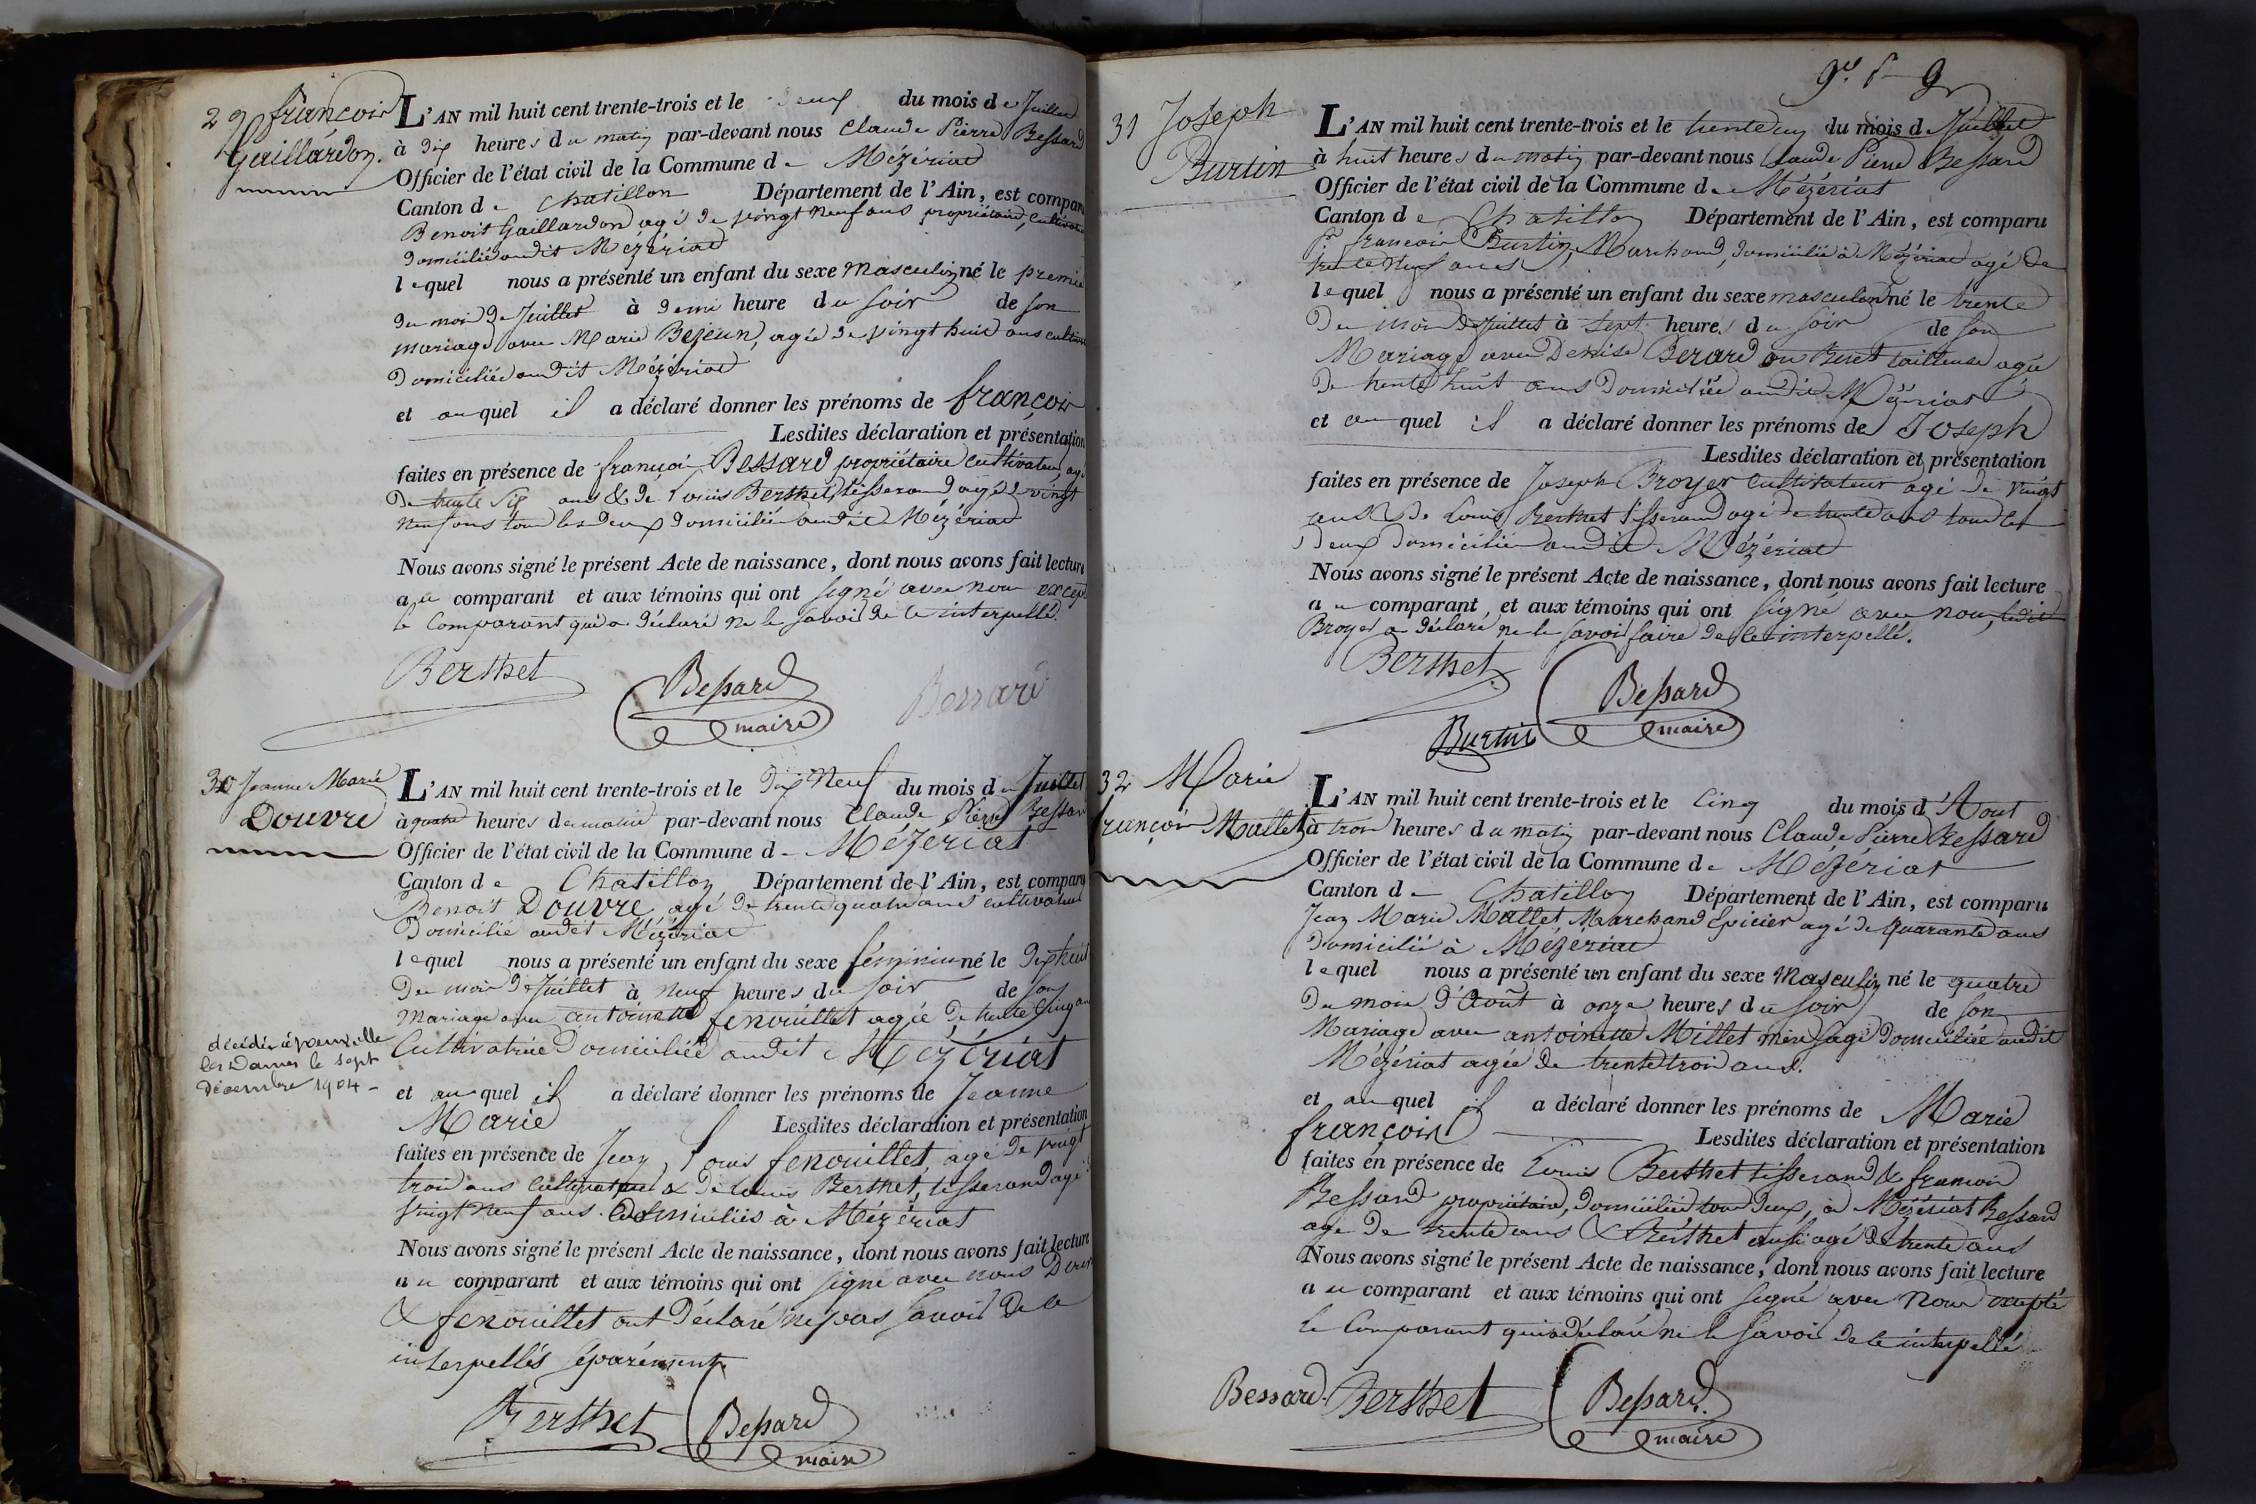 29 françois
Gaillardon.
L'AN mil huit cent trente-trois et le deux du mois de Juillet
à dix heures du matin par-devant nous Claude Pierre Bessard
Officier de l'état civil de la Commune de Mézériat
Canton de Chatillon Département de l'Ain, est comparu
Benoit Gaillardon agé de vingt neuf ans propriétaire, cultivateur
domicilié audit Mézériat
lequel nous a présenté un enfant du sexe masculin né le premier
du mois de Juillet à demi heure du soir de son
mariage avec Marie Bejean, agée de vingt huit ans
domiciliée audit Mézériat
et auquel il a déclaré donner les prénoms de françois
Lesdites déclaration et présentation
faites en présence de françois Bessard propriétaire cultivateur agé
de trente six ans & de Louis Berthet tisserand agé de vingt
neuf ans tous les deux domiciliés audit Mézériat
Nous avons signé le présent Acte de naissance, dont nous avons fait lecture
au comparant et aux témoins qui ont signé avec nous excepté
le Comparant qui a déclaré ne le savoir de ce interpellé.
Berthet
Bessard
maire
Bessard
30 Jeanne Marie
Douvre
L'AN mil huit cent trente-trois et le dix Neuf du mois de Juillet
à quatre heures du matin par-devant nous Claude Pierre Bessard
Officier de l'état civil de la Commune de Mézériat
Canton de Chatillon Département de l'Ain, est comparu
Benoit Douvre agé de trente quatre ans cultivateur
Domicilié audit Mézériat
lequel nous a présenté un enfant du sexe féminin né le dix huit
du mois de Juillet à neuf heures du soir de son
Mariage avec antoinette fenouillet agée de trente cinq ans
Cultivatrice Domiciliée audit Mézériat
décédée à
les Dames le sept
décembre 1904
et auquel il a déclaré donner les prénoms de Jeanne
Marie Lesdites déclaration et présentation
faites en présence de Jean Louis fenouillet agé de vingt
trois ans cultivateur & de Louis Berthet, tisserand agé
vingt neuf ans domiciliés à Mézériat
Nous avons signé le présent Acte de naissance, dont nous avons fait lecture
au comparant et aux témoins qui ont signé avec nous
& fenouillet ont déclaré ne pas savoir de ce
interpellés séparément
Berthet
Bessard
maire
31 Joseph
Burtin
L'AN mil huit cent trente-trois et le trente un du mois de Juillet
à huit heures du matin par-devant nous Claude Pierre Bessard
Officier de l'état civil de la Commune de Mézériat
Canton de Chatillon Département de l'Ain, est comparu
françois Burtin, Marchand, domicilié à Mézériat agé de
trente neuf ans
lequel nous a présenté un enfant du sexe masculin né le trente
du mois de Juillet à sept heures du soir de son
Mariage avec Denise Berard ou Beret tailleuse agée
de trente huit ans Domiciliée audit Mézériat
et auquel il a déclaré donner les prénoms de Joseph
Lesdites déclaration et présentation
faites en présence de Joseph Broyer cultivateur agé de vingt
ans & de Louis Berthet tisserand agé de trente ans tous les
deux domiciliés audit Mézériat
Nous avons signé le présent Acte de naissance, dont nous avons fait lecture
au comparant, et aux témoins qui ont signé avec nous, ledit
Broyer a déclaré ne le savoir faire de ce interpellé.
Berthet
Bessard
maire
Burtin
32 Marie
françois Mallet
L'AN mil huit cent trente-trois et le cinq du mois d'Aout
à trois heures du matin par-devant nous Claude Pierre Bessard
Officier de l'état civil de la Commune de Mézériat
Canton de Chatillon Département de l'Ain, est comparu
Jean Marie Mallet Marchand Epicier agé de quarante ans
domicilié à Mézériat
lequel nous a présenté un enfant du sexe Masculin né le quatre
du mois d'Août à onze heures du soir de son
Mariage avec antoinette Millet domiciliée audit
Mézériat agée de trente trois ans.
et auquel il a déclaré donner les prénoms de Marie
françois Lesdites déclaration et présentation
faites en présence de Louis Berthet tisserand & françois
Bessard propriétaire, domiciliés tous deux, à Mézériat Bessard
agé de trente ans & Berthet aussi agé de trente ans
Nous avons signé le présent Acte de naissance, dont nous avons fait lecture
au comparant et aux témoins qui ont signé avec nous excepté
le Comparant qui a déclaré ne le savoir de ce interpellé
Bessard Berthet
Bessard
maire